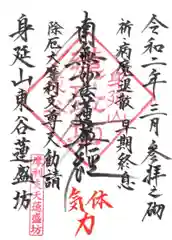 令和二年三月参拝之砌
祈病魔退散早期終息
南無妙法蓮華経
除厄大摩利支尊天勧請
身延山東谷蓮盛坊
摩利支天蓮盛坊
体
気力